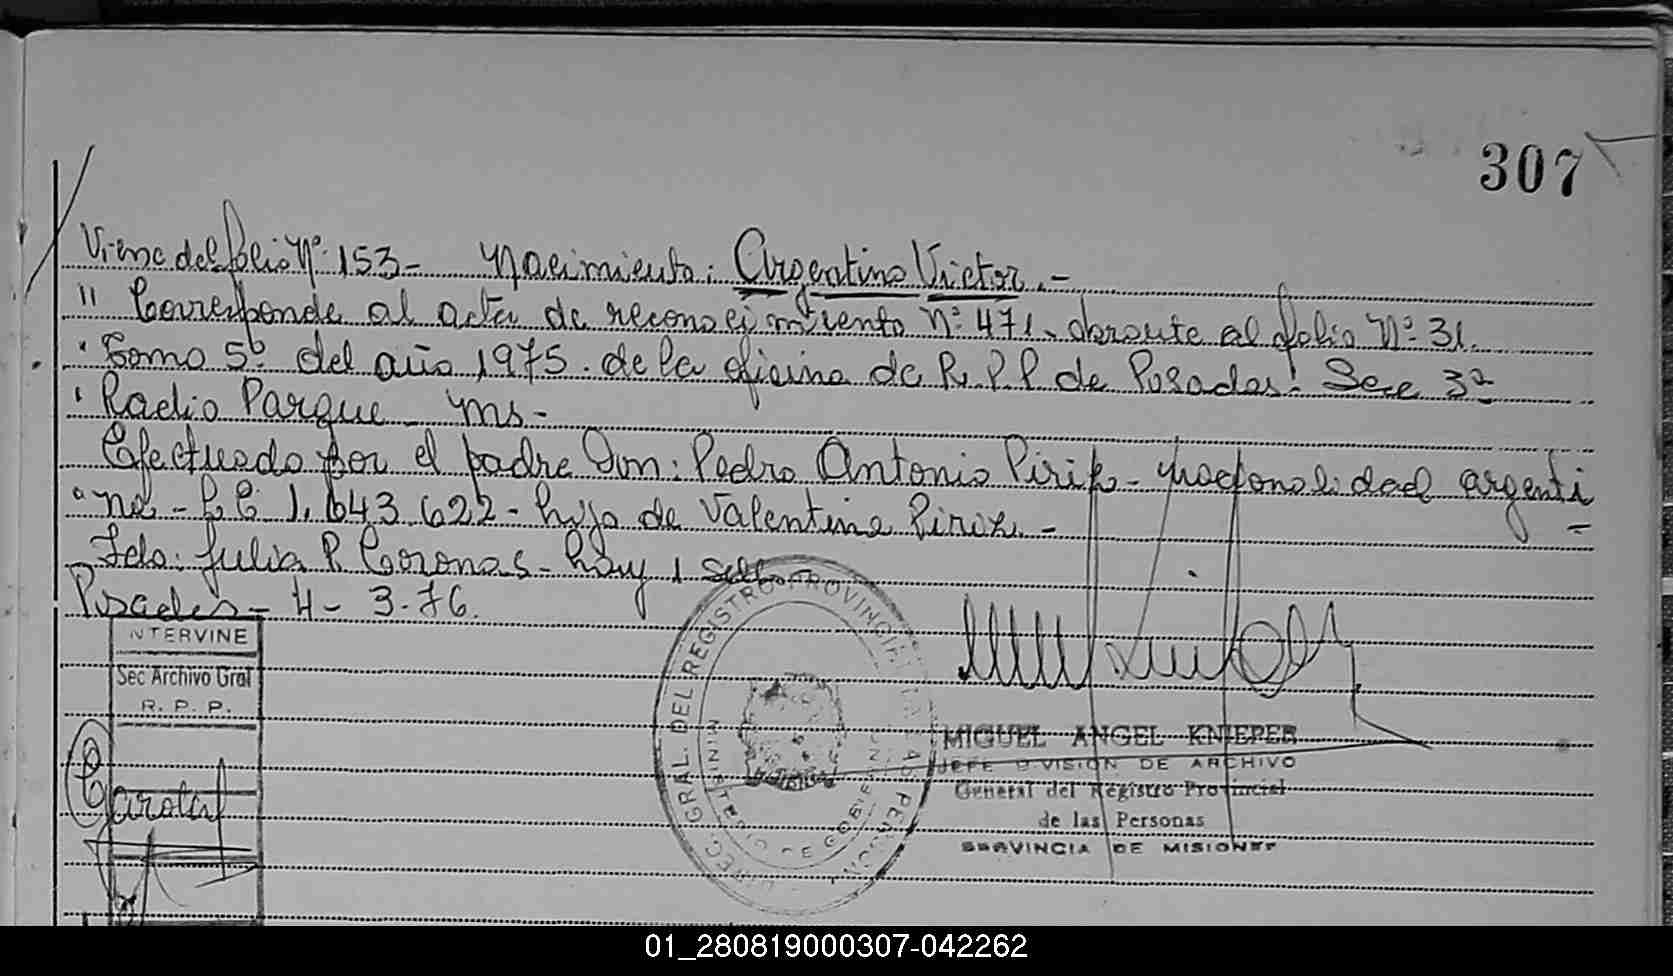 307
Viene del folio Nº 153 - Nacimiento: Argentino Victor. -
" Corresponde al acta de reconocimiento Nº 471. obrante al folio Nº 31.
" Tomo 5º del año 1975. de la oficina de R.P.P de Posadas. Secc 3ª
" Radio Parque - Ms -
Efectuado por el padre Don: Pedro Antonio Piriz - Nacionalidad argenti
" na - 1.643.622 - hijo de Valentina Piriz. -
Fdo: Julia R. Coronas - hay 1 sello
Posadas - 4 - 3 - 76.
INTERVINE
Sec Archivo Gral
R. P. P.
DIREC. GRAL. DEL REGISTRO PROVINCIAL DE LAS PERSONAS
MIGUEL ANGEL KNIEPER
JEFE DIVISION DE ARCHIVO
General del Registro Provincial
de las Personas
PROVINCIA DE MISIONES
01_280819000307-042262